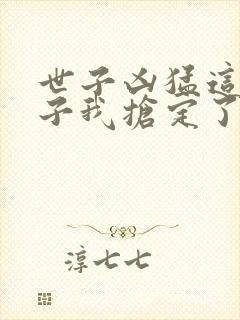 世子凶猛這
子我搶定了
淳七七